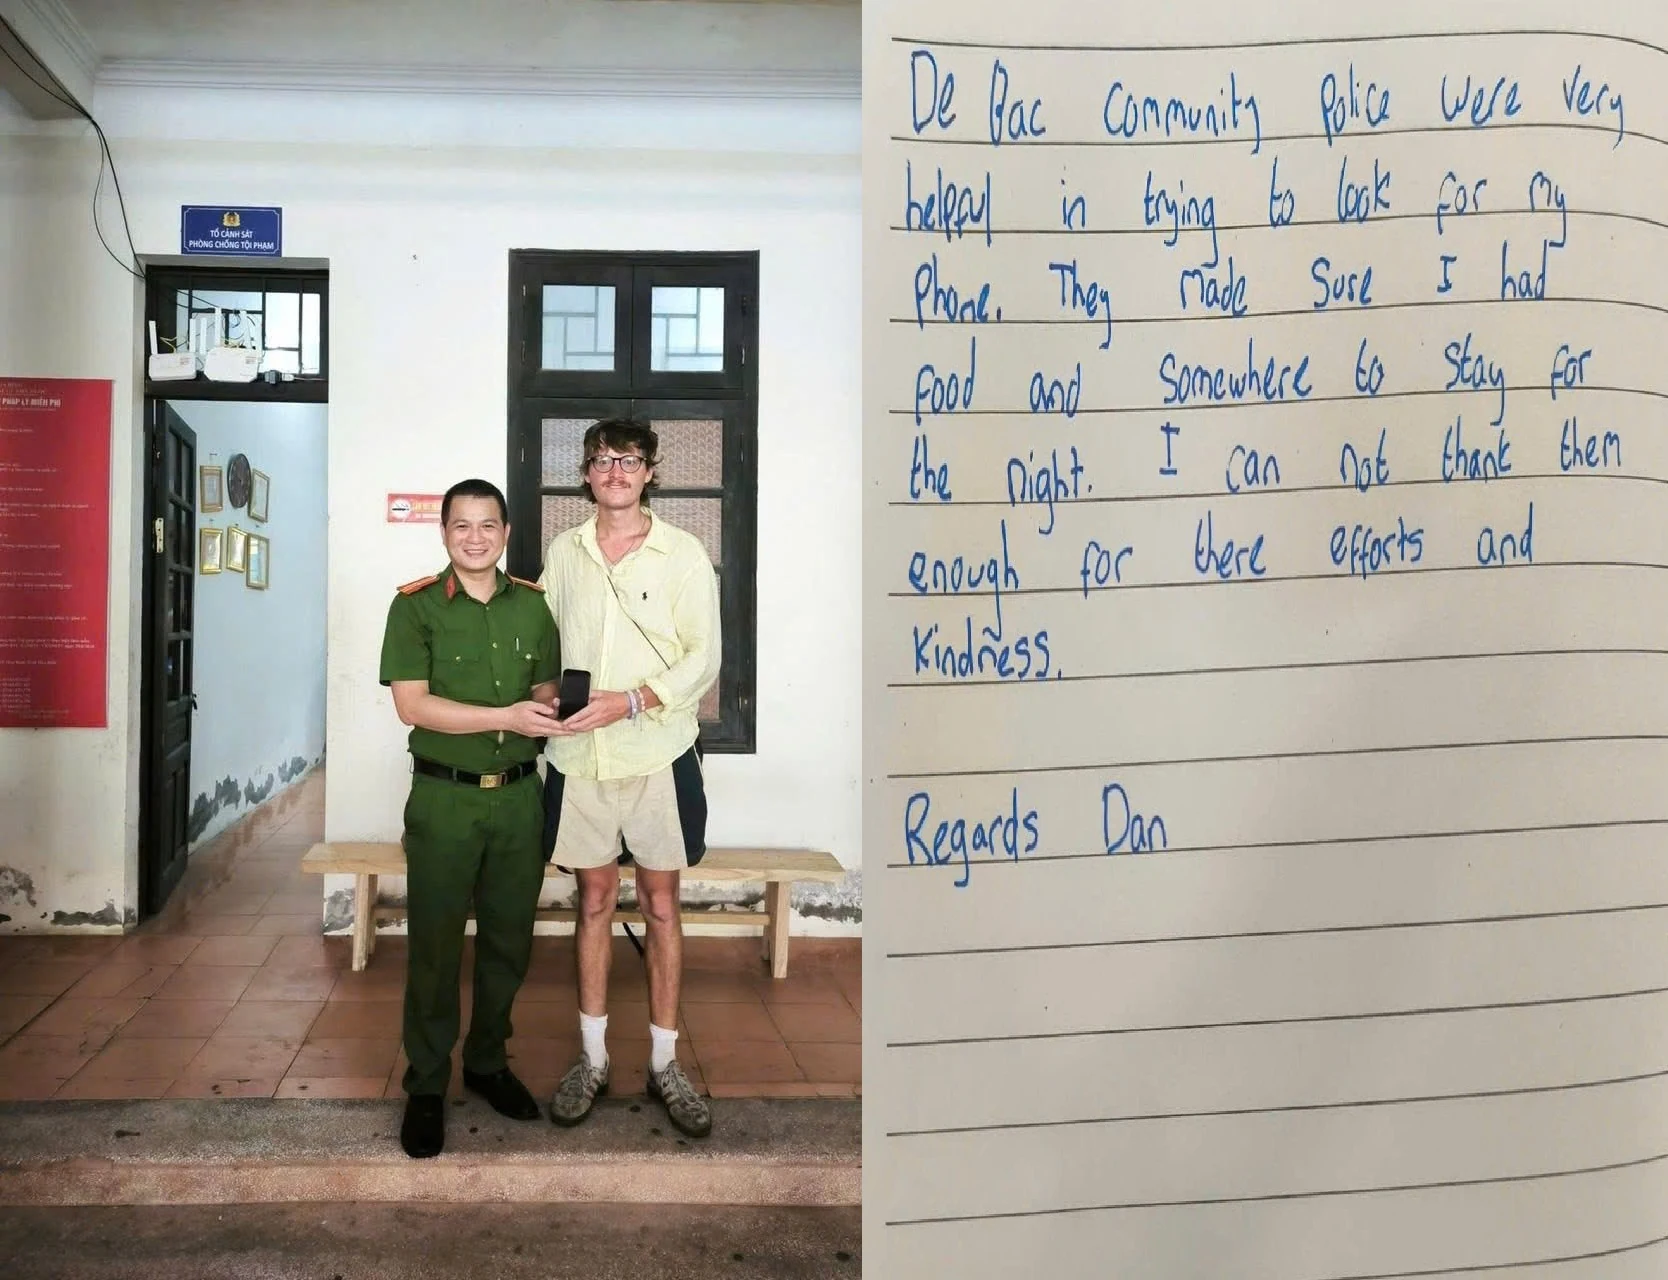 TỔ CẢNH SÁT
PHÒNG CHỐNG TỘI PHẠM
PHÁP LÝ MIỄN PHÍ
De Bac Community Police were very
helpful in trying to look for my
Phone. They made sure I had
food and somewhere to stay for
the night. I can not thank them
enough for there efforts and
Kindness.
Regards Dan